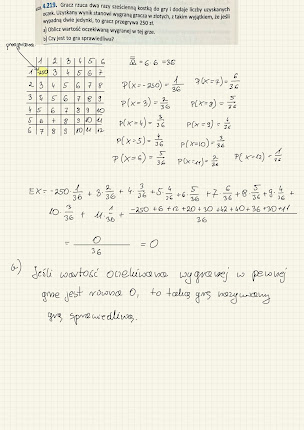 4.219. Gracz rzuca dwa razy sześcienną kostką do gry i dodaje liczby uzyskanych
oczek. Uzyskany wynik stanowi wygraną gracza w złotych, z takim wyjątkiem, że jeśli
wypadną dwie jedynki, to gracz przegrywa 250 zł.
a) Oblicz wartość oczekiwaną wygranej w tej grze.
b) Czy jest to gra sprawiedliwa?
przegrana
1 2 3 4 5 6
1 -250 3 4 5 6 7
2 3 4 5 6 7 8
3 4 5 6 7 8 9
4 5 6 7 8 9 10
5 6 7 8 9 10 11
6 7 8 9 10 11 12
Ω = 6·6 = 36
P(X=-250) = 1/36 P(X=7) = 6/36
P(X=3) = 2/36 P(X=8) = 5/36
P(X=4) = 3/36 P(X=9) = 4/36
P(X=5) = 4/36 P(X=10) = 3/36
P(X=6) = 5/36 P(X=11) = 2/36 P(X=12) = 1/36
EX = -250·1/36 + 3·2/36 + 4·3/36 + 5·4/36 + 6·5/36 + 7·6/36 + 8·5/36 + 9·4/36 +
10·3/36 +
= 0/36 = 0
b) Jeśli wartość oczekiwana wygranej w pewnej
grze jest równa 0, to taką grę nazywamy
grą sprawiedliwą.